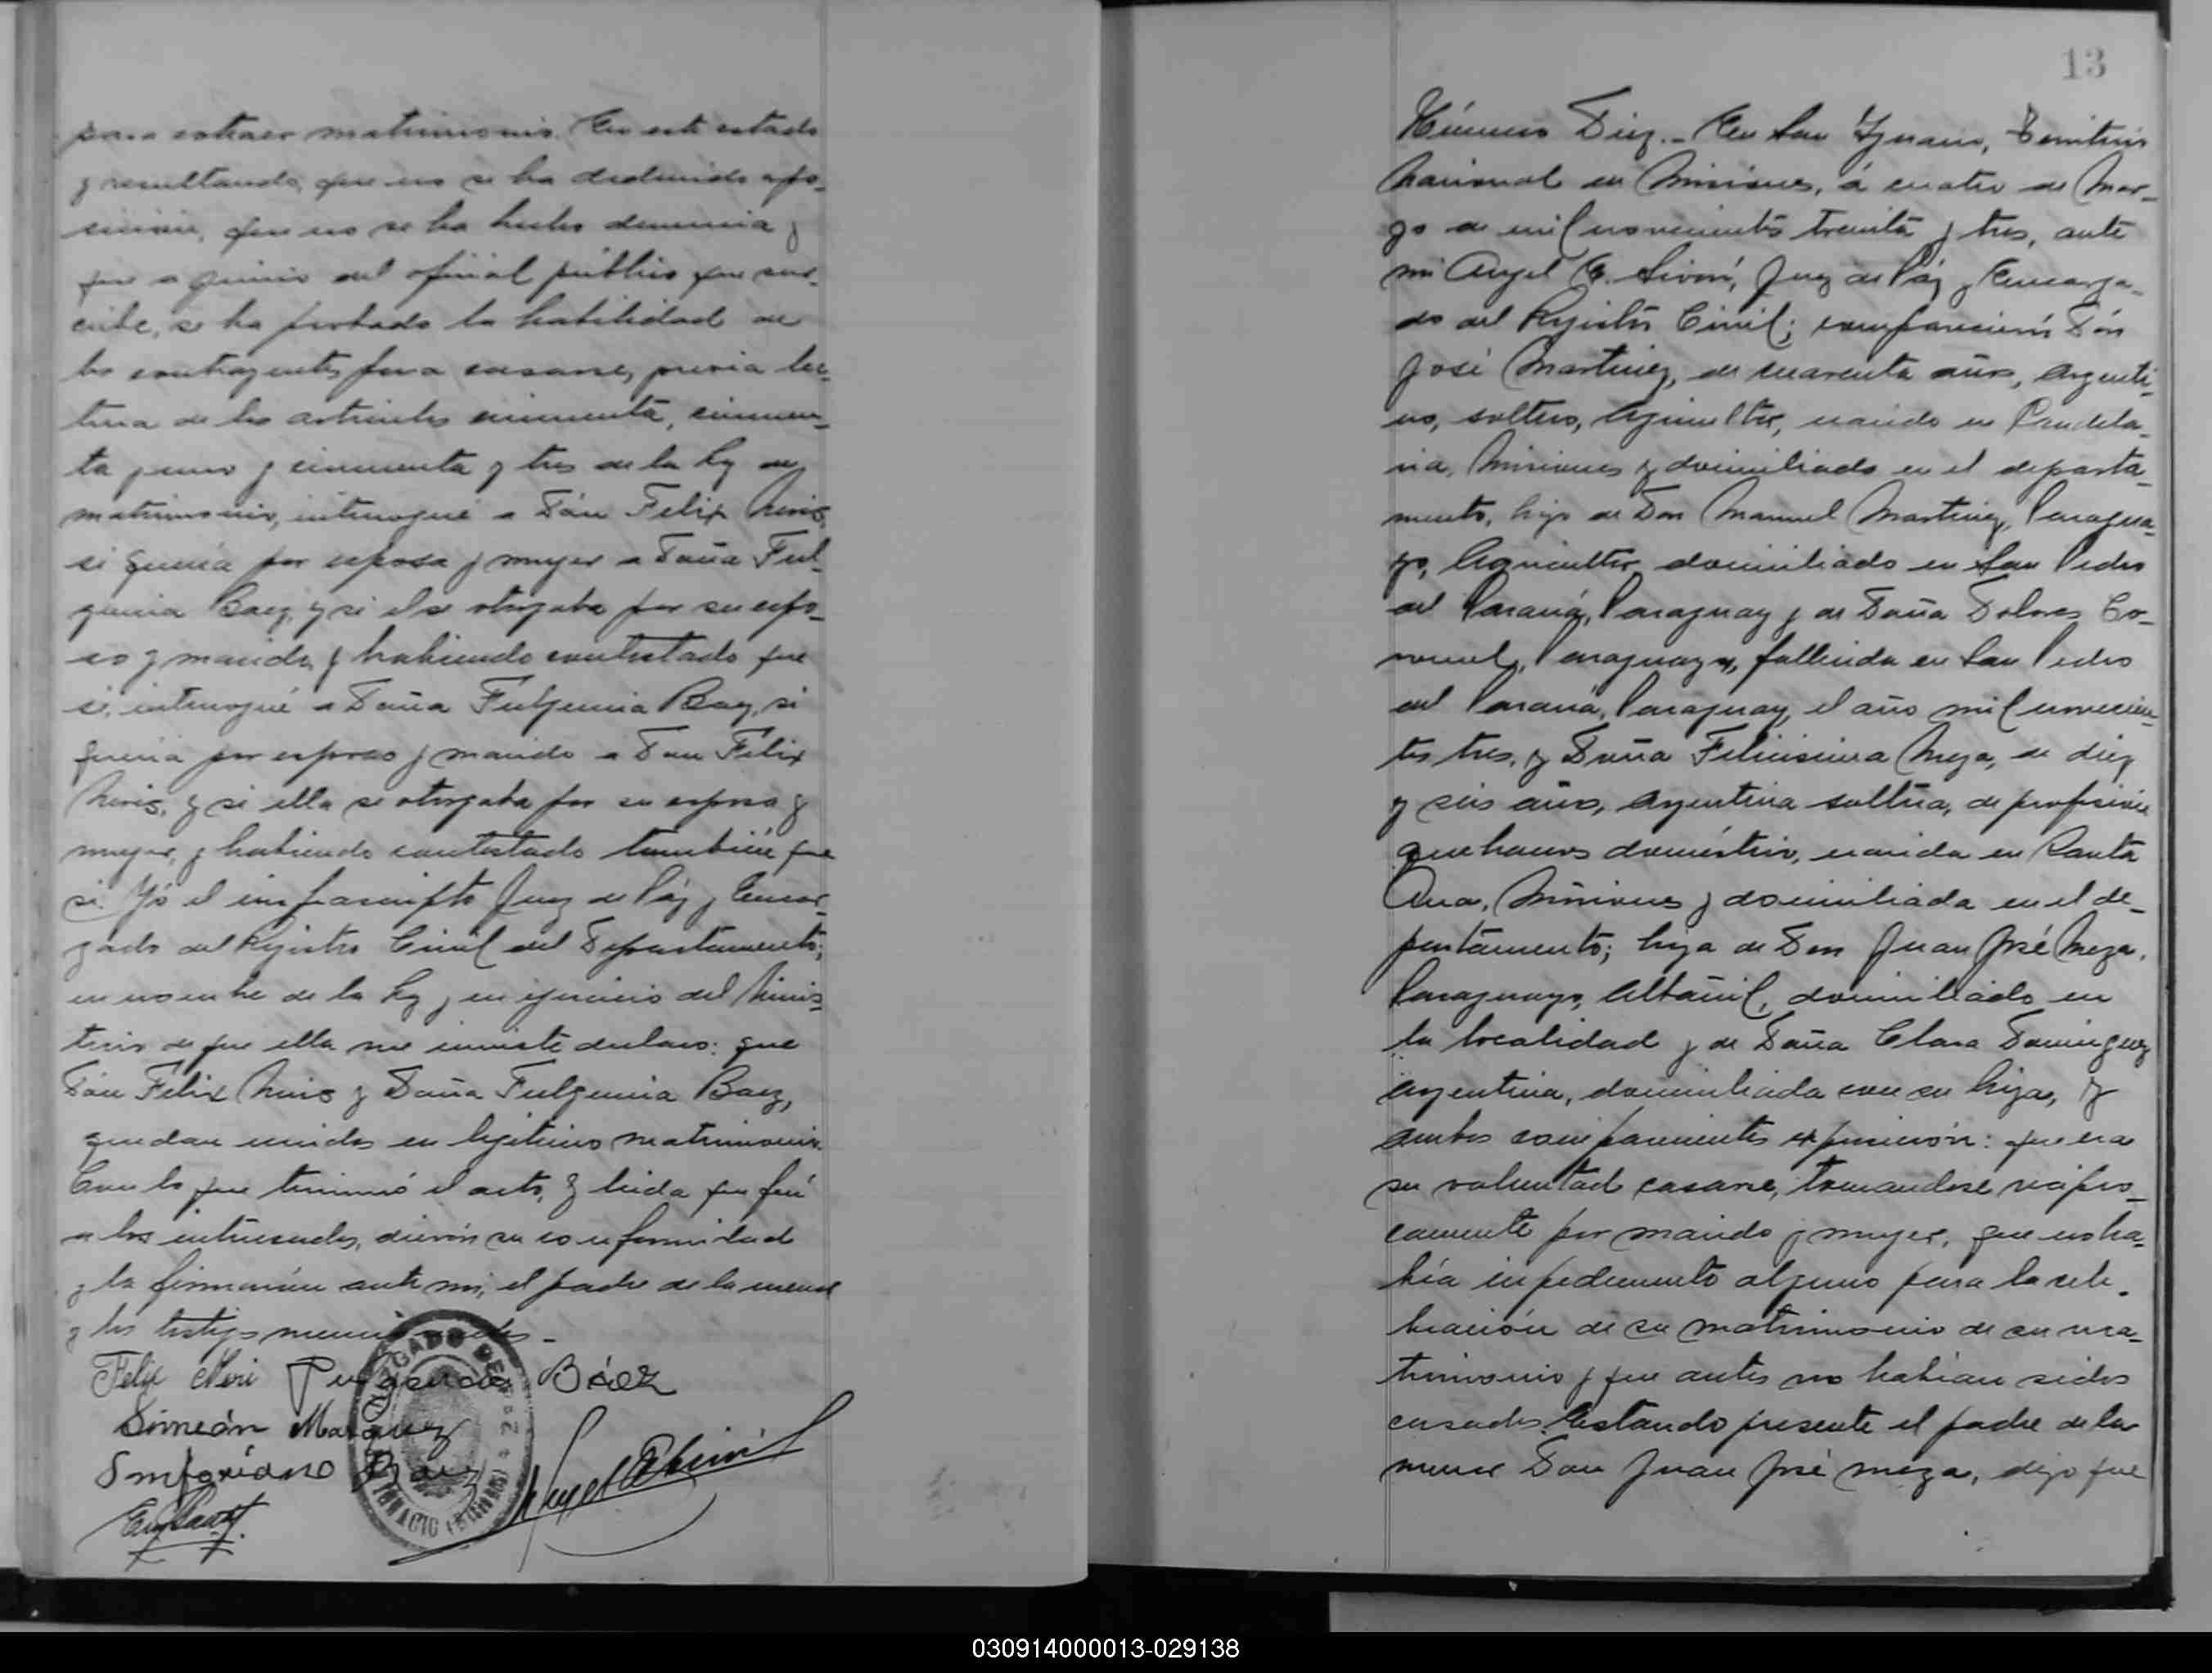 para contraer matrimonio. En este estado
y resultando, que no se ha deducido opo-
sicion, que no se ha hecho denuncia y
que a juicio del oficial público que sus-
cribe, se ha probado la habilidad de
los contrayentes para casarse, previa lec-
tura de los articulos cincuenta, cincuen-
ta y uno y cincuenta y tres de la ley de
matrimonio, interrogué a Dón Felix
si queria por esposa y mujer a Doña Ful-
gencia Baez, y si el se otorgaba por su espo-
so y marido, y habiendo contestado que
si, interrogué a Doña Fulgencia Baez, si
queria por esposo y marido a Don Felix
y si ella se otorgaba por su esposa y
mujer, y habiendo contestado también que
si. Yó el infrascripto Juez de Páz y Encar-
gado del Registro Civil del Departamento;
en nombre de la ley y en ejercicio del Minis-
terio de que ella me inviste declaro: que
Dón Felix y Doña Fulgencia Baez,
quedan unidos en legitimo matrimonio.
Con lo que terminó el acto, y leida que fué
a los interesados, dierón su conformidad
y la firmarón ante mi, el padre de la menor
y los testigos mencionados.-
Felix Neri Fulgencia Báez
Simeón Marquez
Sinforiano Baez
JUZGADO DE PAZ
IGNACIO (MISIONES)
13
Número Diez.- En San Ignacio, Territorio
Nacional en Misiones, á cuatro de Mar-
zo de mil novecientos treinta y tres, ante
mi Angel E. Juez de Páz y Encarga-
do del Registro Civil; comparecierón Dón
José Martinez, de cuarenta años, Argenti-
no, soltero, Agricultor, nacido en Candela-
ria, Misiones y domiciliado en el departa-
mento, hijo de Don Manuel Martinez, Paragua-
yo, Agricultor domiciliado en San Pedro
del Paraná, Paraguay y de Doña Dolores Co-
ronel, Paraguaya, fallecida en San Pedro
del Paraná, Paraguay, el año mil novecien-
tos tres, y Doña Felicisima Meza, de diez
y seis años, Argentina soltera, de profesión
quehaceres domésticos, nacida en Santa
Ana, Misiones y domiciliada en el de-
partamento; hija de Don Juan José Meza,
Paraguayo, Albañil, domiciliado en
la localidad y de Doña Clara Dominguez
Argentina, domiciliada con su hija, y
ambos comparecientes expusierón: que era
su voluntad casarse, tomandose recipro-
camente por marido y mujer, que no ha-
bía impedimento alguno para la cele-
bración de su matrimonio de su ma-
trimonio y que antes no habian sidos
casados. Estando presente el padre de la
menor Don Juan José Meza, dijo que
030914000013-029138